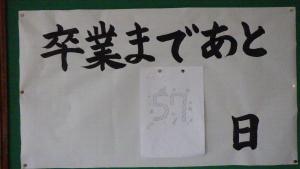 卒業まであと
57
日